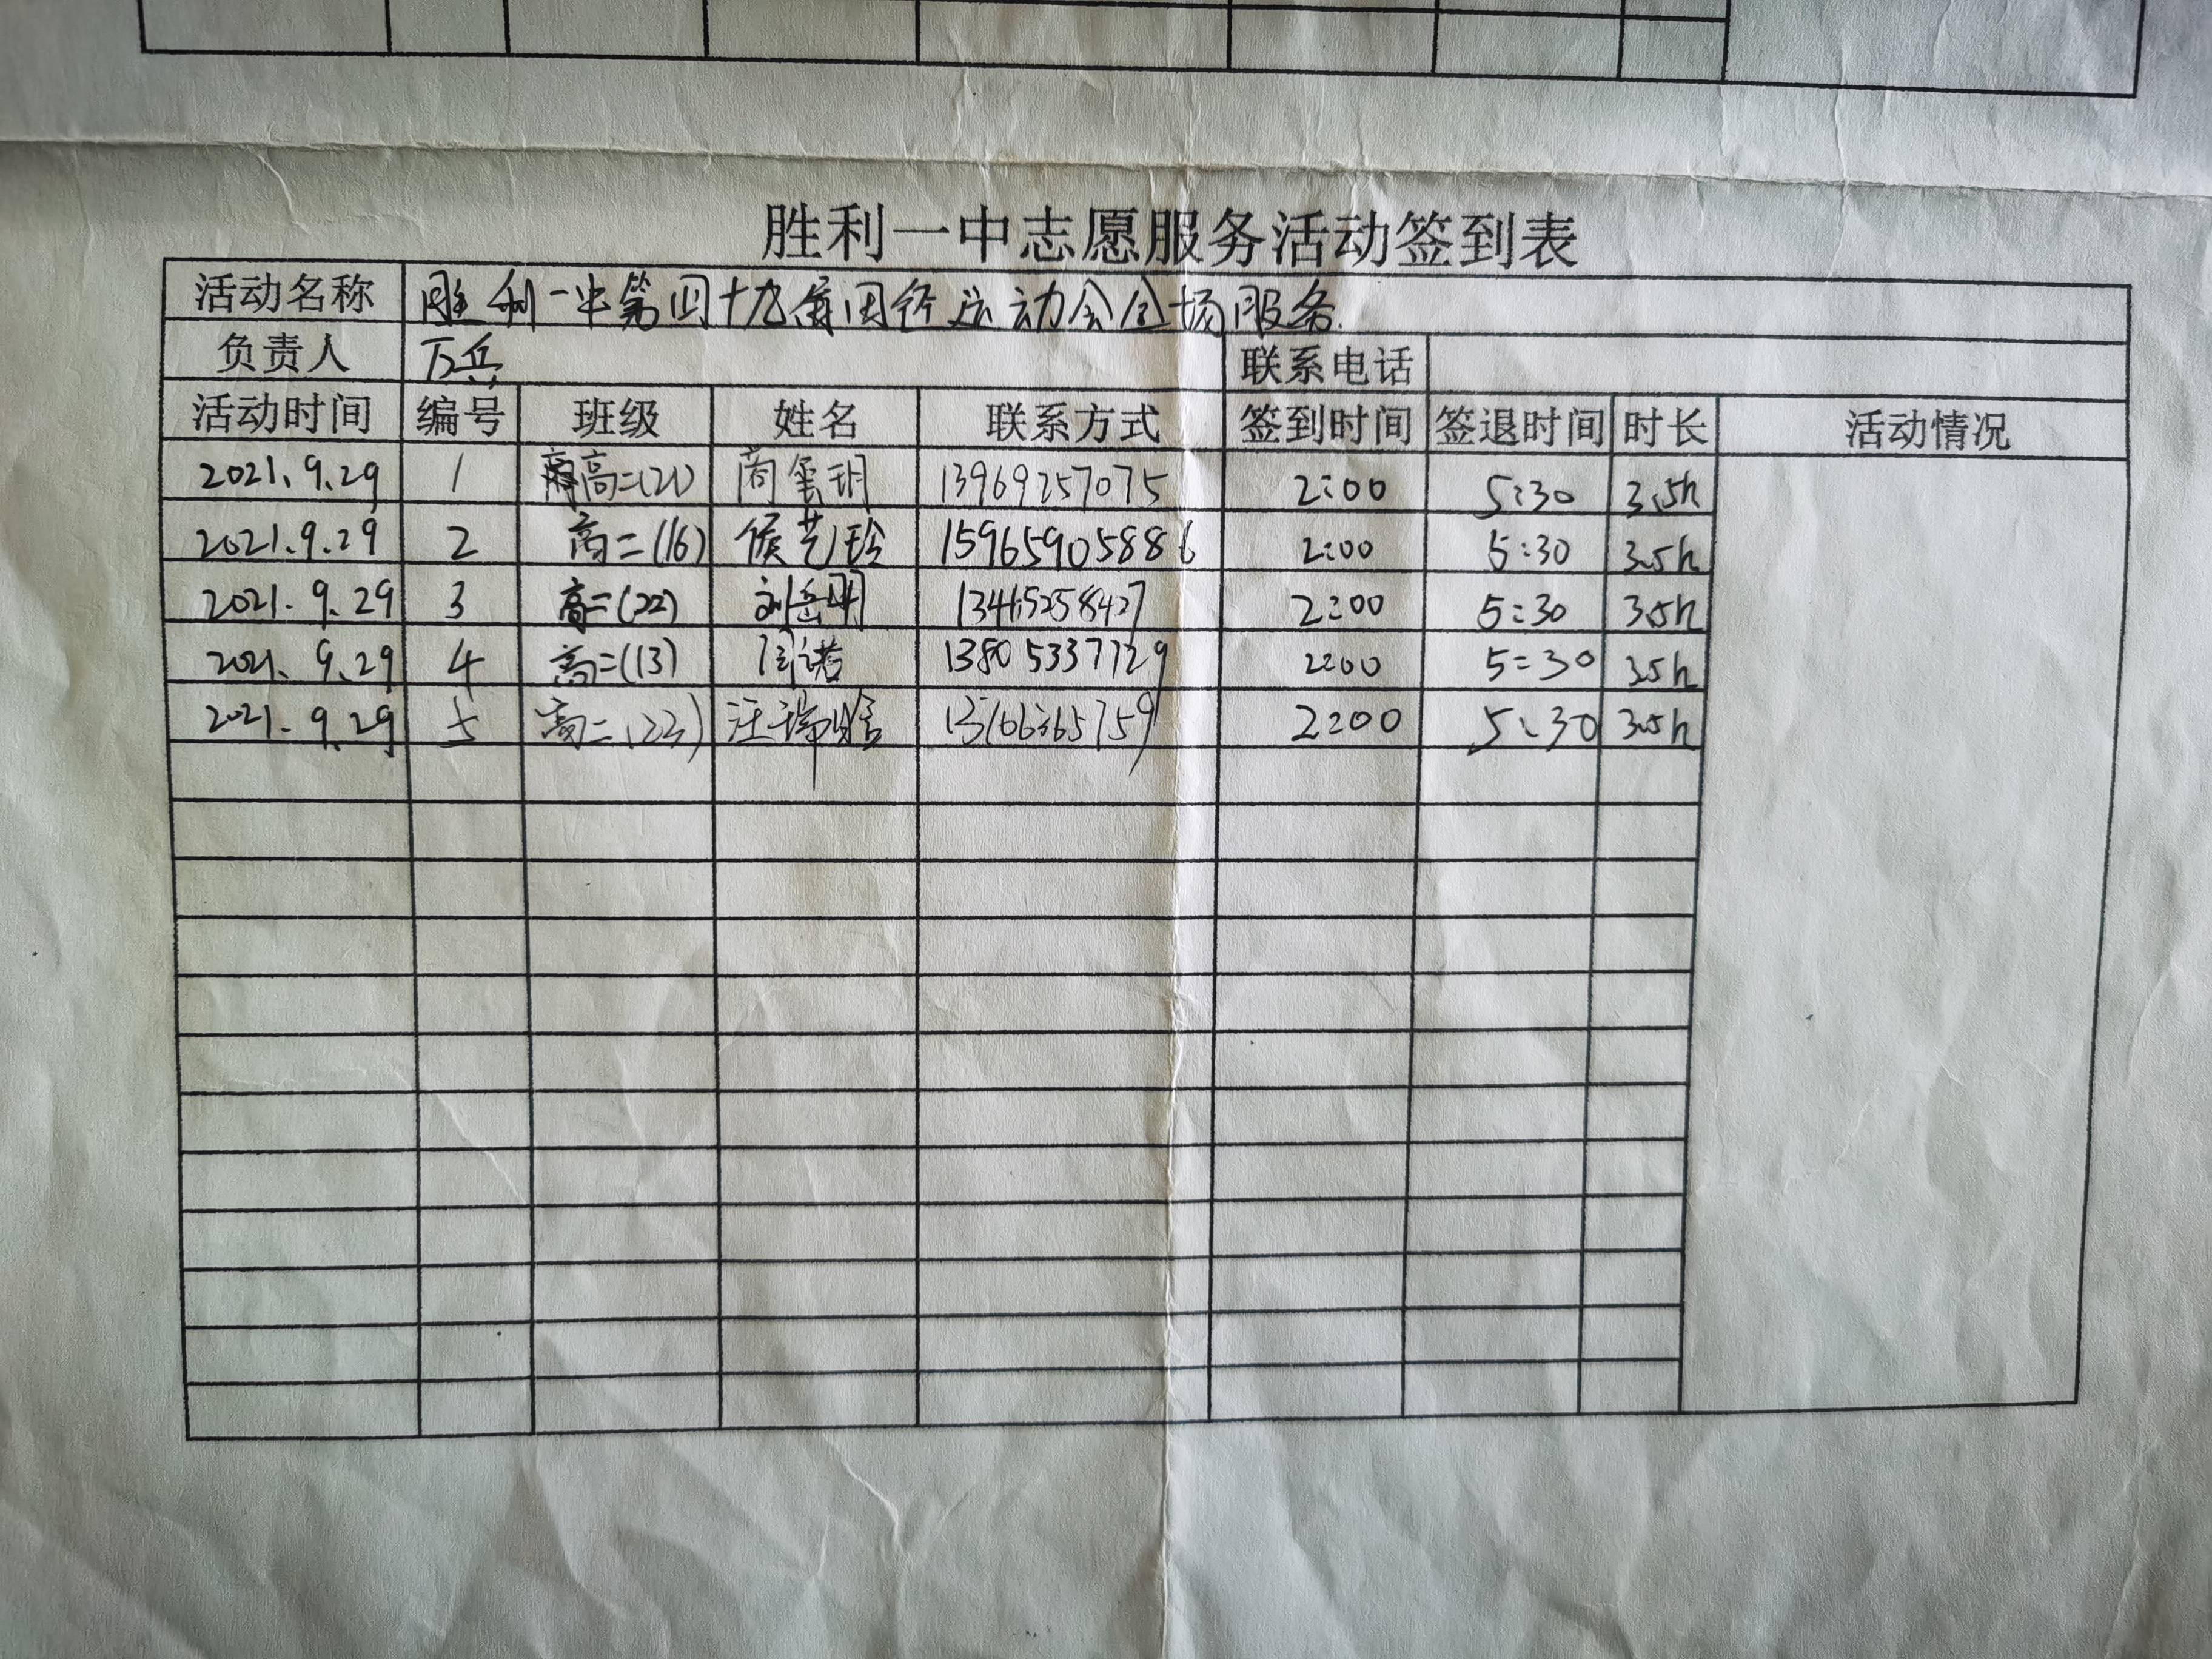 胜利一中志愿服务活动签到表
活动名称 胜利一中第四十九届田径运动会会场服务
负责人 万兵 联系电话
活动时间 编号 班级 姓名 联系方式 签到时间 签退时间 时长 活动情况
2021.9.29 1 高二(21) 商玥 13969257075 2:00 5:30 3.5h
2021.9.29 2 高二(16) 侯艺玲 15965905886 2:00 5:30 3.5h
2021.9.29 3 高二(22) 刘岳明 13465258427 2:00 5:30 3.5h
2021.9.29 4 高二(13) 闫诺 13805337729 2:00 5:30 3.5h
2021.9.29 5 高二(23) 汪瑞晗 2:00 5:30 3.5h